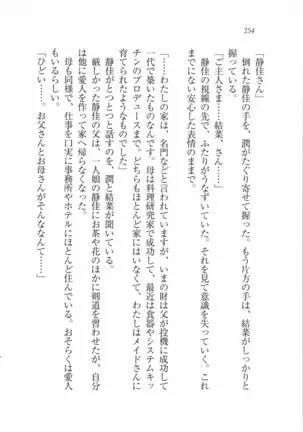 254
「静佳さん」
倒れた静佳の手を、潤がたぐり寄せて握った。もう片方の手は、結菜がしっかりと
握っている。
「ご主人さま……結菜、さん……」
静佳の視線の先で、ふたりがうなずいていた。それを見て意識を失っていく。これ
までにない安心した表情のままで。
「……わたしの家は、名門などと言われていますが、いまの財は父が投機に成功して
一代で築いたものなんです。母は料理研究家で成功して、最近は食器やシステムキッ
チンのプロデュースまで。どちらもほとんど家にはいなくて、わたしはメイドさんに
育てられたようなものでした」
静佳がとつとつと話すのを、潤と結菜が聞いている。
厳しかった静佳の父は、一人娘の静佳にお茶や花のほかに剣道を習わせたが、自分
は他に愛人を作って家へ帰らなくなった。
母も同様で、仕事を口実に事務所やホテルにほとんど住んでいる。おそらくは愛人
もいるらしい。
「ひどい……。お父さんとお母さんがそんななんて……」